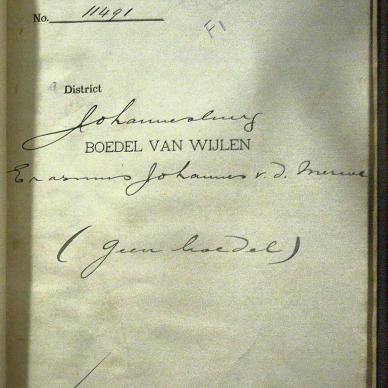 No. 11491
F1
District
Johannesburg
BOEDEL VAN WIJLEN
Erasmus Johannes v. d. Merwe
(geen boedel)